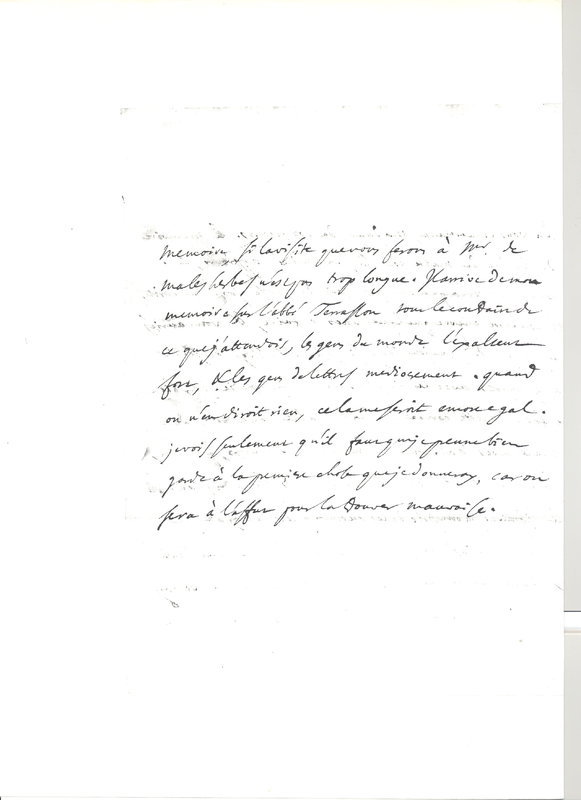 memoire si la visite que nous ferons à Mr. de
malesherbes n'est pas trop longue. Il arrive de mon
memoire sur l'abbé Terrasson tout le contraire de
ce que j'attendois, les gens du monde l'exaltent
fort, & les gens de lettres mediocrement. quand
on n'en diroit rien, cela me seroit encore egal.
je vois seulement qu'il faut que je prenne bien
garde à la premiere chose que je donneray, car on
sera à l'affut pour la trouver mauvaise.